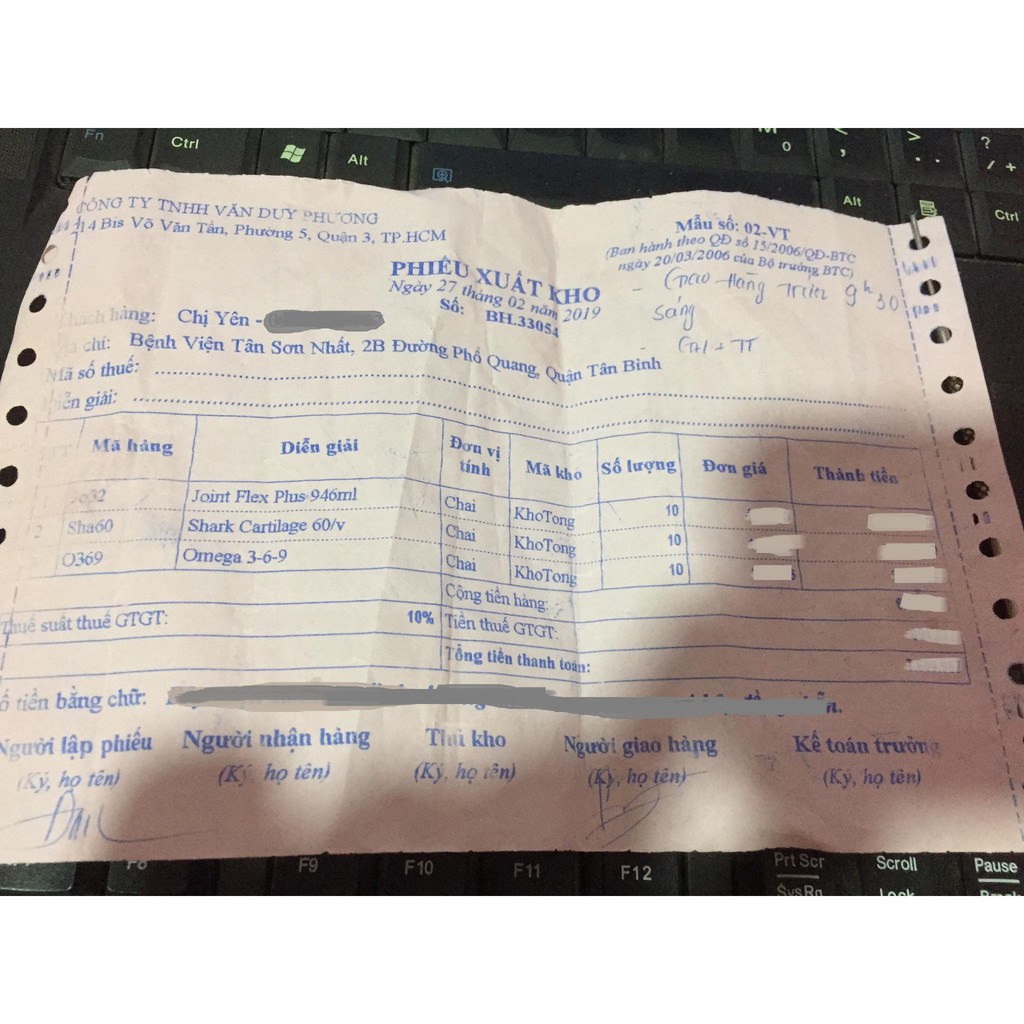 Fn Ctrl Alt M 0 < , > . ? / +
Alt Ctrl
CÔNG TY TNHH VĂN DUY PHƯƠNG
214 Bis Võ Văn Tần, Phường 5, Quận 3, TP.HCM
Mẫu số: 02-VT
(Ban hành theo QĐ số 15/2006/QĐ-BTC
ngày 20/03/2006 của Bộ trưởng BTC)
PHIẾU XUẤT KHO
Ngày 27 tháng 02 năm 2019
Số: BH.33054
- Giao Hàng Trước 9h30
sáng
- GH + TT
Khách hàng: Chị Yên -
chỉ: Bệnh Viện Tân Sơn Nhất, 2B Đường Phổ Quang, Quận Tân Bình
Mã số thuế:
Diễn giải:
Mã hàng Diễn giải Đơn vị tính Mã kho Số lượng Đơn giá Thành tiền
Jo32 Joint Flex Plus 946ml Chai KhoTong 10
2 Sha60 Shark Cartilage 60/v Chai KhoTong 10
O369 Omega 3-6-9 Chai KhoTong 10
Cộng tiền hàng:
Thuế suất thuế GTGT: 10% Tiền thuế GTGT:
Tổng tiền thanh toán:
Số tiền bằng chữ:
Người lập phiếu Người nhận hàng Thủ kho Người giao hàng Kế toán trưởng
(Ký, họ tên) (Ký, họ tên) (Ký, họ tên) (Ký, họ tên) (Ký, họ tên)
F8 F9 F10 F11 F12 Prt Scr Scroll Pause
SysRq Lock Break